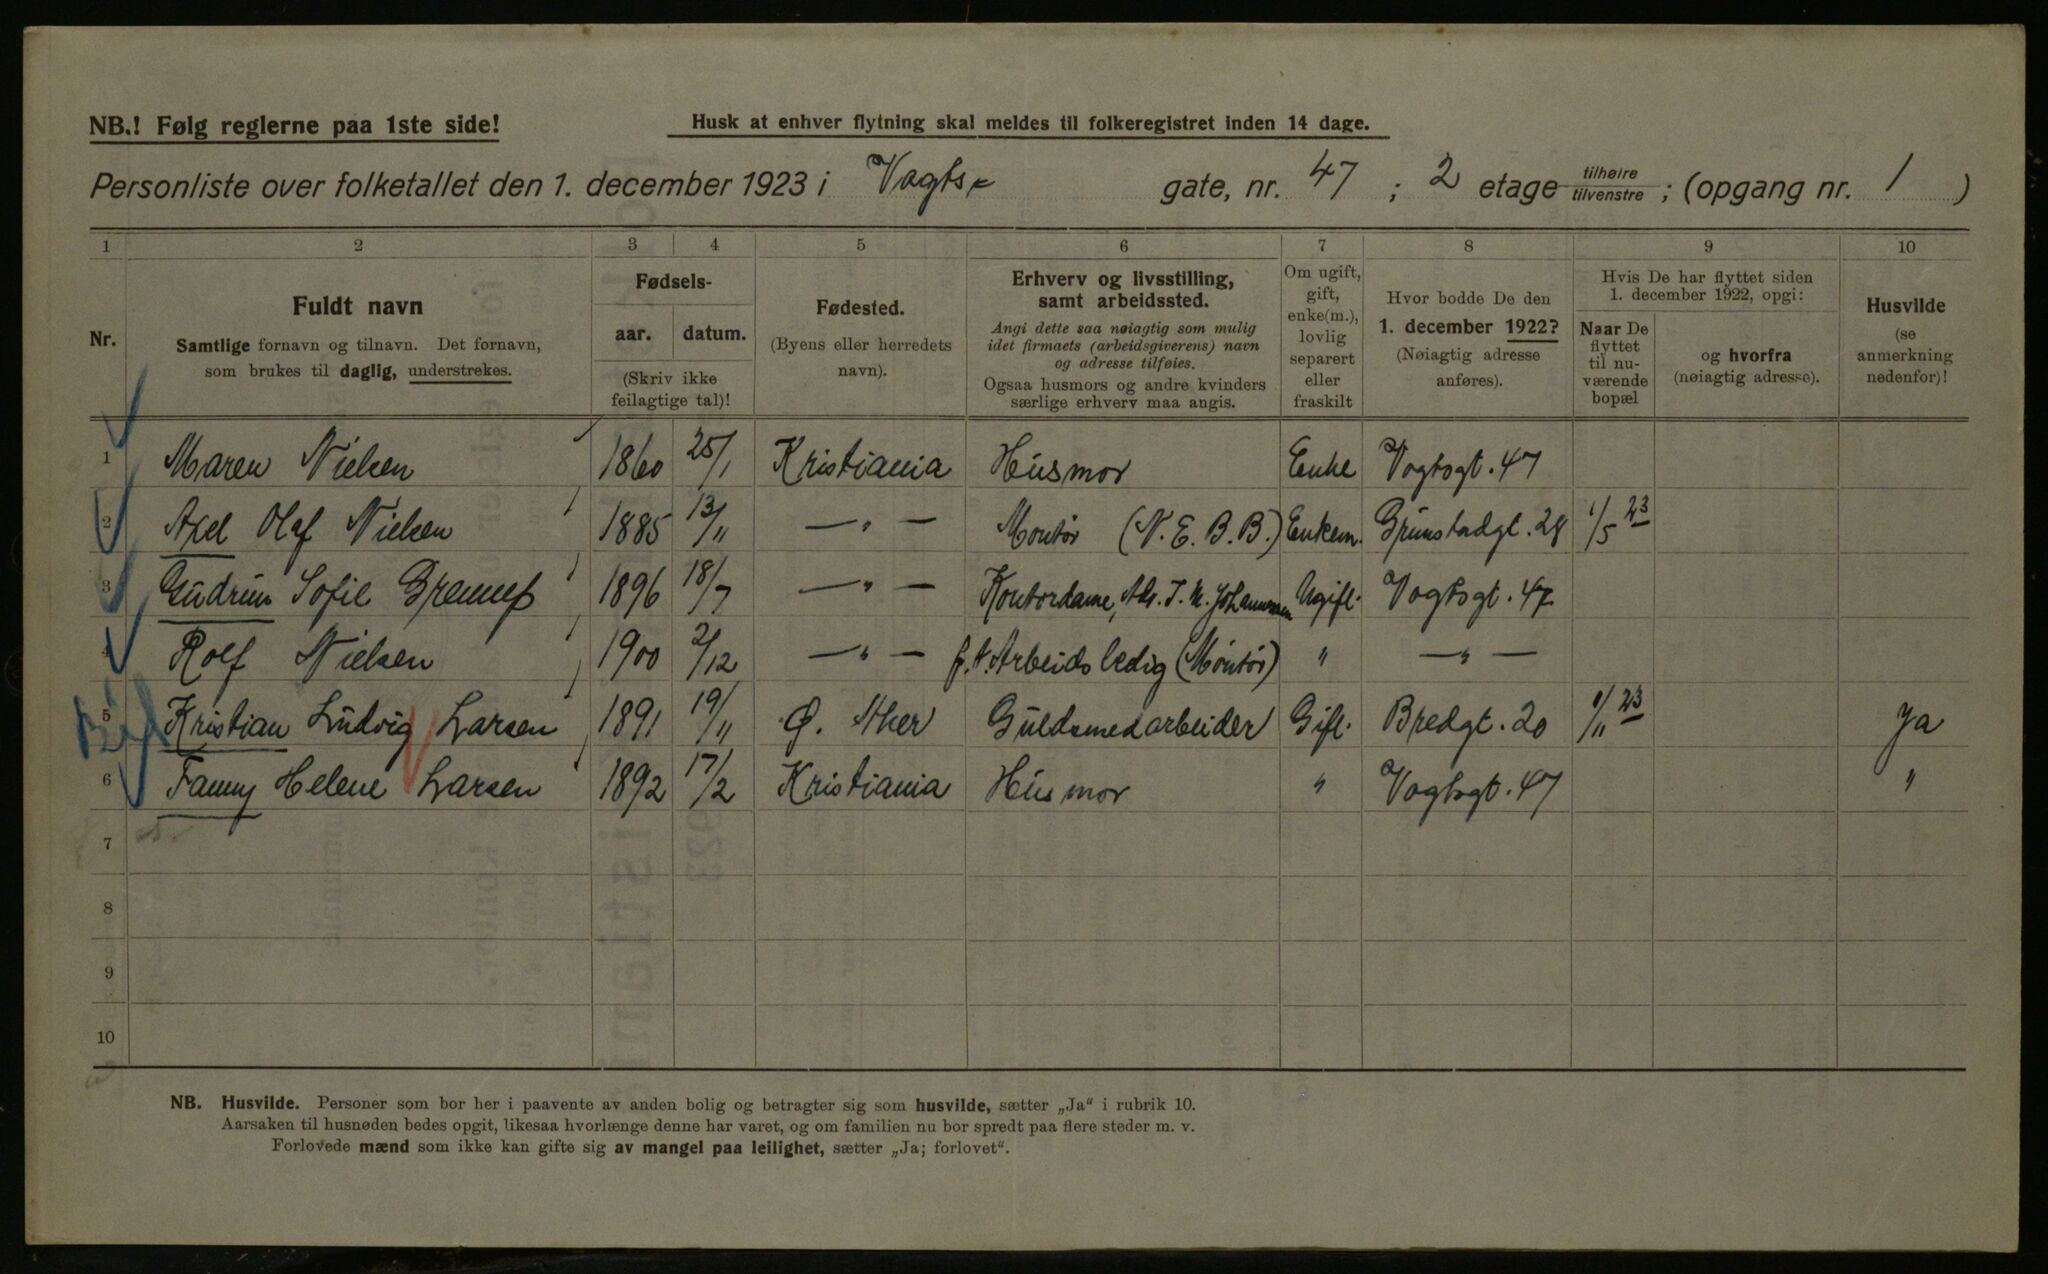 NB.! Følg reglerne paa 1ste side!
Husk at enhver flytning skal meldes til folkeregistret inden 14 dage.
Personliste over folketallet den 1. december 1923 i Vogts gate, nr. 47 ; 2 etage tilhøire tilvenstre ; (opgang nr. 1 )
1 2 3 4 5 6 7 8 9 10
Nr.
Fuldt navn
Samtlige fornavn og tilnavn. Det fornavn,
som brukes til daglig, understrekes.
Fødsels-
aar. datum.
(Skriv ikke
feilagtige tal)!
Fødested.
(Byens eller herredets
navn).
Erhverv og livsstilling,
samt arbeidssted.
Angi dette saa nøiagtig som mulig
idet firmaets (arbeidsgiverens) navn
og adresse tilføies.
Ogsaa husmors og andre kvinders
særlige erhverv maa angis.
Om ugift,
gift,
enke(m.),
lovlig
separert
eller
fraskilt
Hvor bodde De den
1. december 1922?
(Nøiagtig adresse
anføres).
Hvis De har flyttet siden
1. december 1922, opgi:
Naar De
flyttet
til nu-
værende
bopæl
og hvorfra
(nøiagtig adresse).
Husvilde
(se
anmerkning
nedenfor)!
1 Maren Nielsen 1860 25/1 Kristiania Husmor Enke Vogtsgt. 47
2 Axel Olaf Nielsen 1885 13/11 — „ — Montør (N. E. B. B.) Enkem. Grimstadgt. 28 1/5 23
3 Gudrun Sofie 1896 18/7 — „ — Kontordame, Ugift. Vogtsgt. 47
4 Rolf Nielsen 1900 2/12 — „ — f. t. Arbeidsledig (Montør) „ — „ —
5 Kristian Ludvig Larsen 1891 19/11 Ø. Aker Guldsmedarbeider Gift. Bredgt. 20 1/11 23 Ja
6 Fanny Helene Larsen 1892 17/2 Kristiania Husmor „ Vogtsgt. 47 „
7
8
9
10
NB. Husvilde. Personer som bor her i paavente av anden bolig og betragter sig som husvilde, sætter „Ja“ i rubrik 10.
Aarsaken til husnøden bedes opgit, likesaa hvorlænge denne har varet, og om familien nu bor spredt paa flere steder m. v.
Forlovede mænd som ikke kan gifte sig av mangel paa leilighet, sætter „Ja; forlovet“.